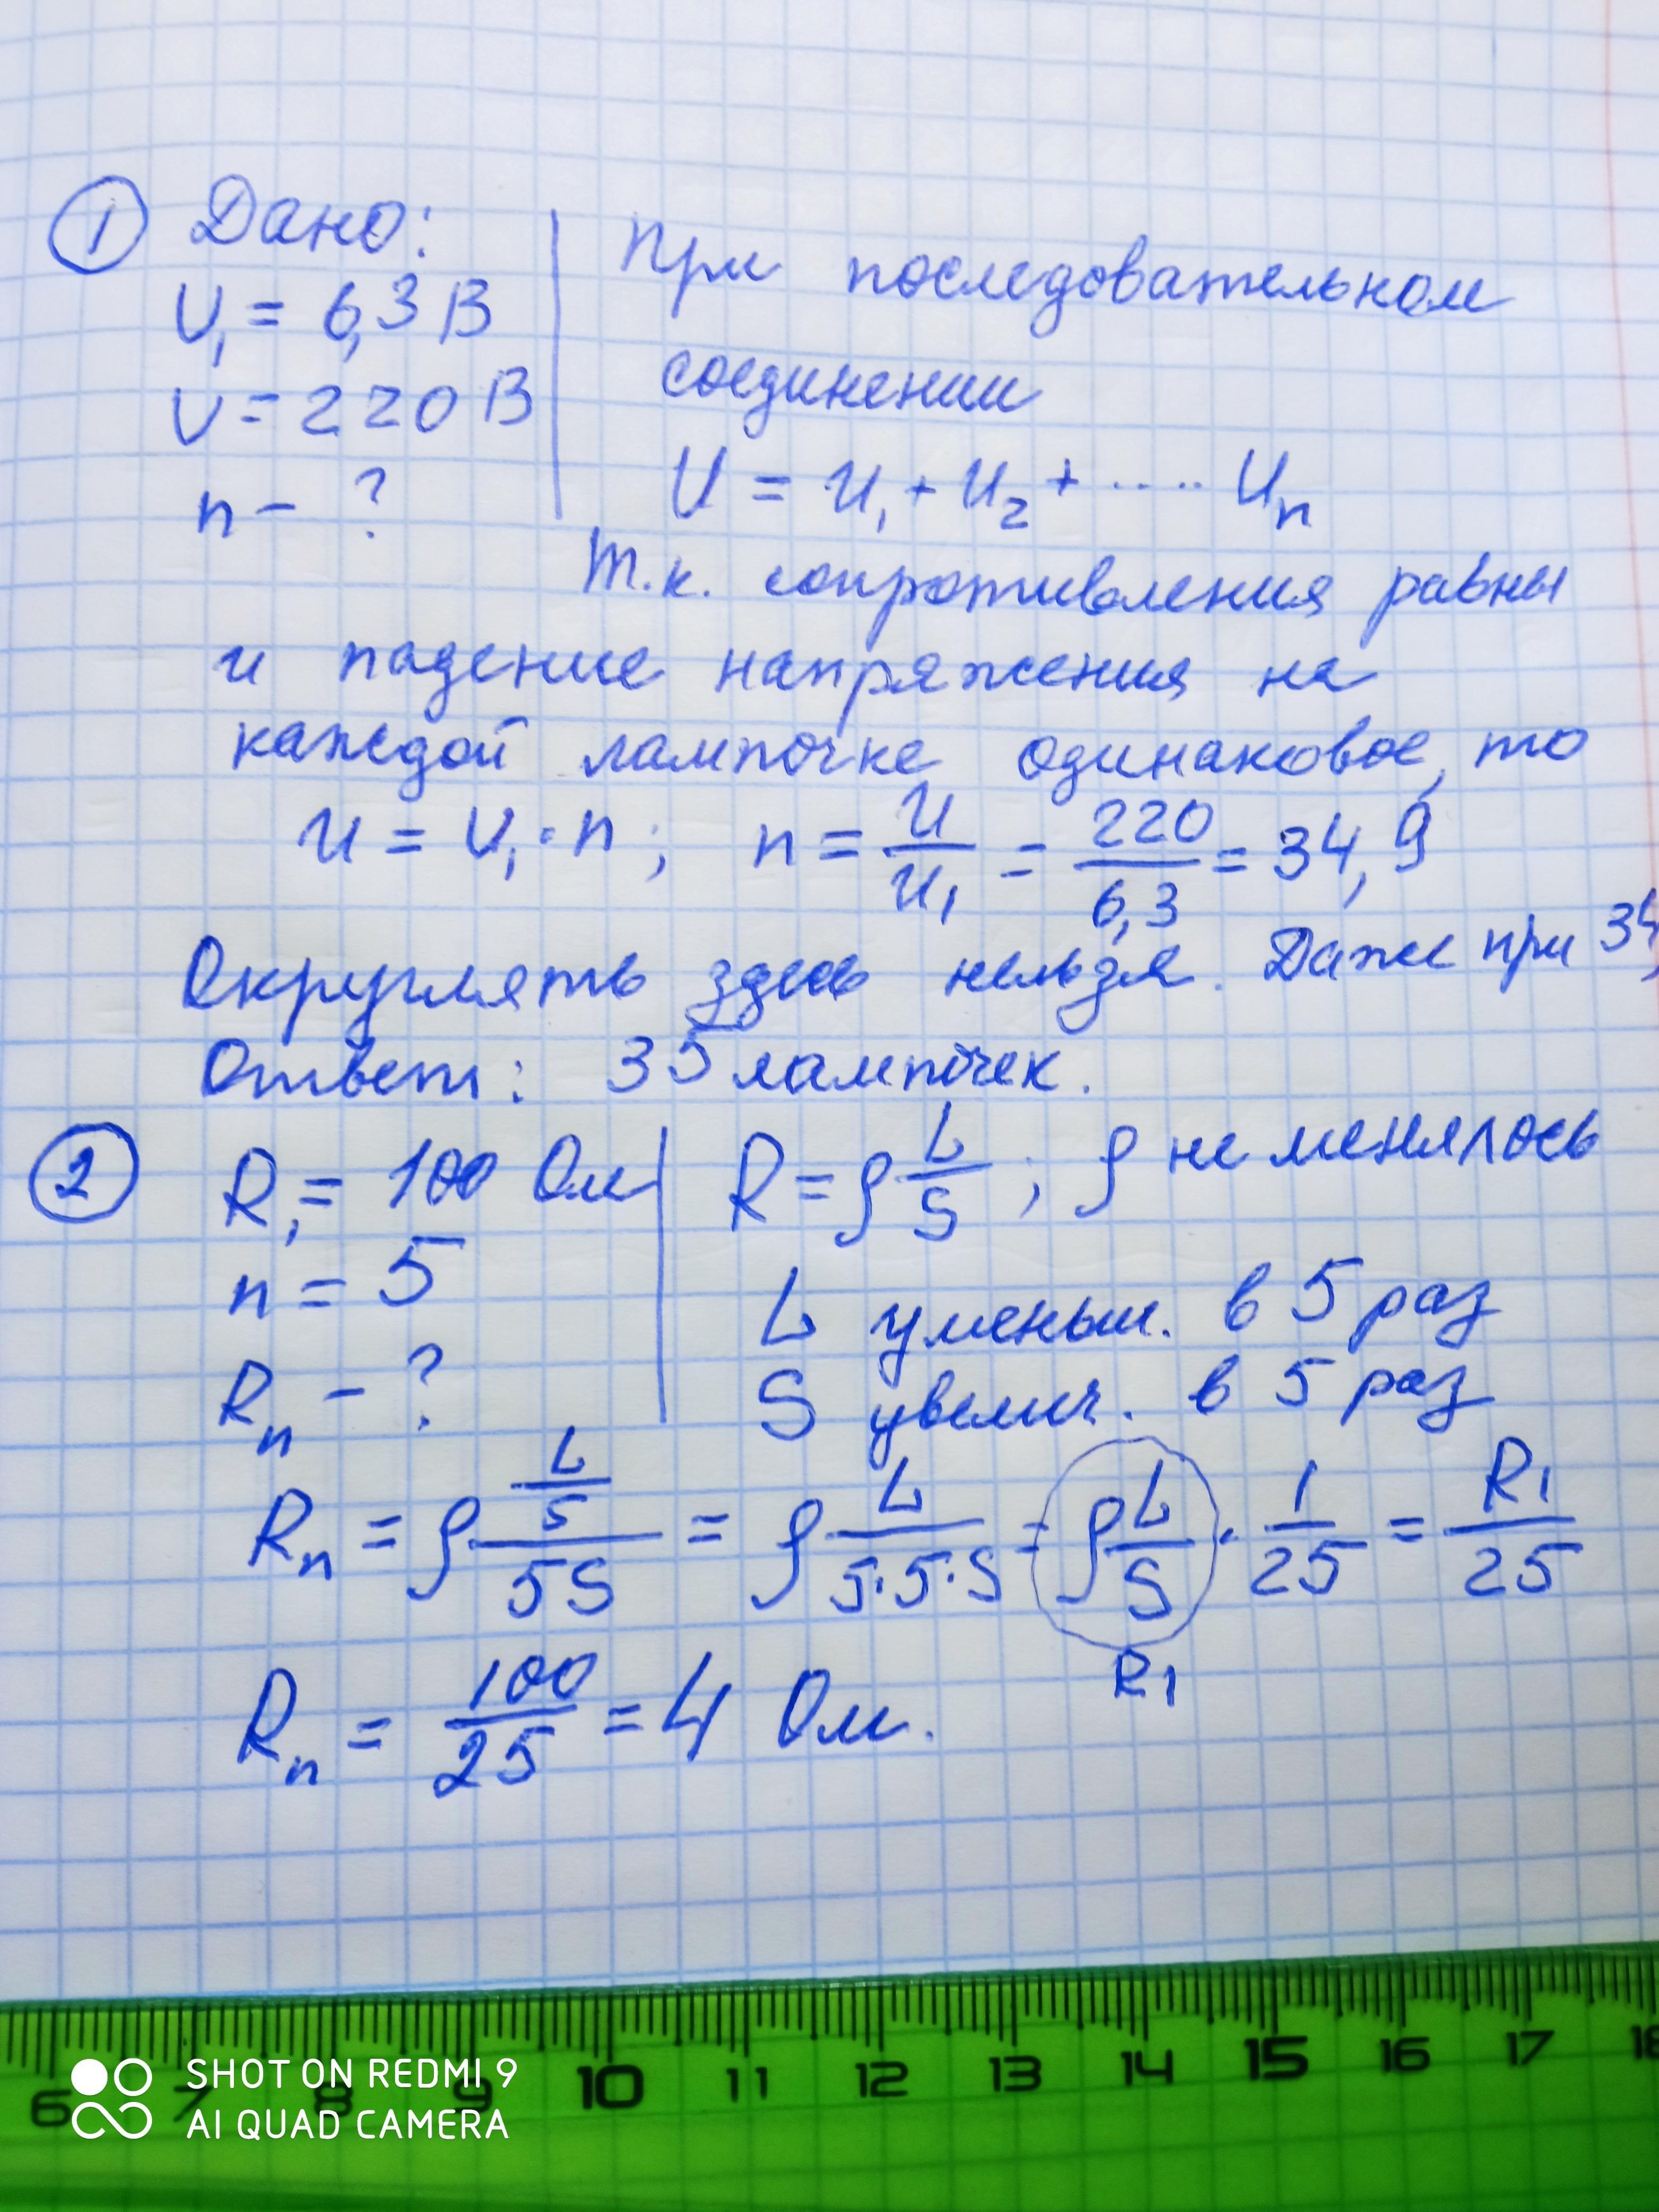 1 Дано:
U₁ = 6,3 В
U = 220 В
n - ?
При последовательном
соединении
U = U₁ + U₂ + ..... Uₙ
Т.к. сопротивления равны
и падение напряжения на
каждой лампочке одинаковое, то
U = U₁ · n ; n = U/U₁ = 220/6,3 = 34,9
Округлять здесь нельзя. Даже при 34,
Ответ: 35 лампочек.
2 R₁ = 100 Ом
n = 5
Rₙ - ?
R = ρ L/S ; ρ не менялось
L уменьш. в 5 раз
S увелич. в 5 раз
Rₙ = ρ (L/5)/(5S) = ρ L/(5·5·S) = ρ L/S · 1/25 = R1/25
R1
Rₙ = 100/25 = 4 Ом.
6 7 8 9 10 11 12 13 14 15 16 17 18
SHOT ON REDMI 9
AI QUAD CAMERA